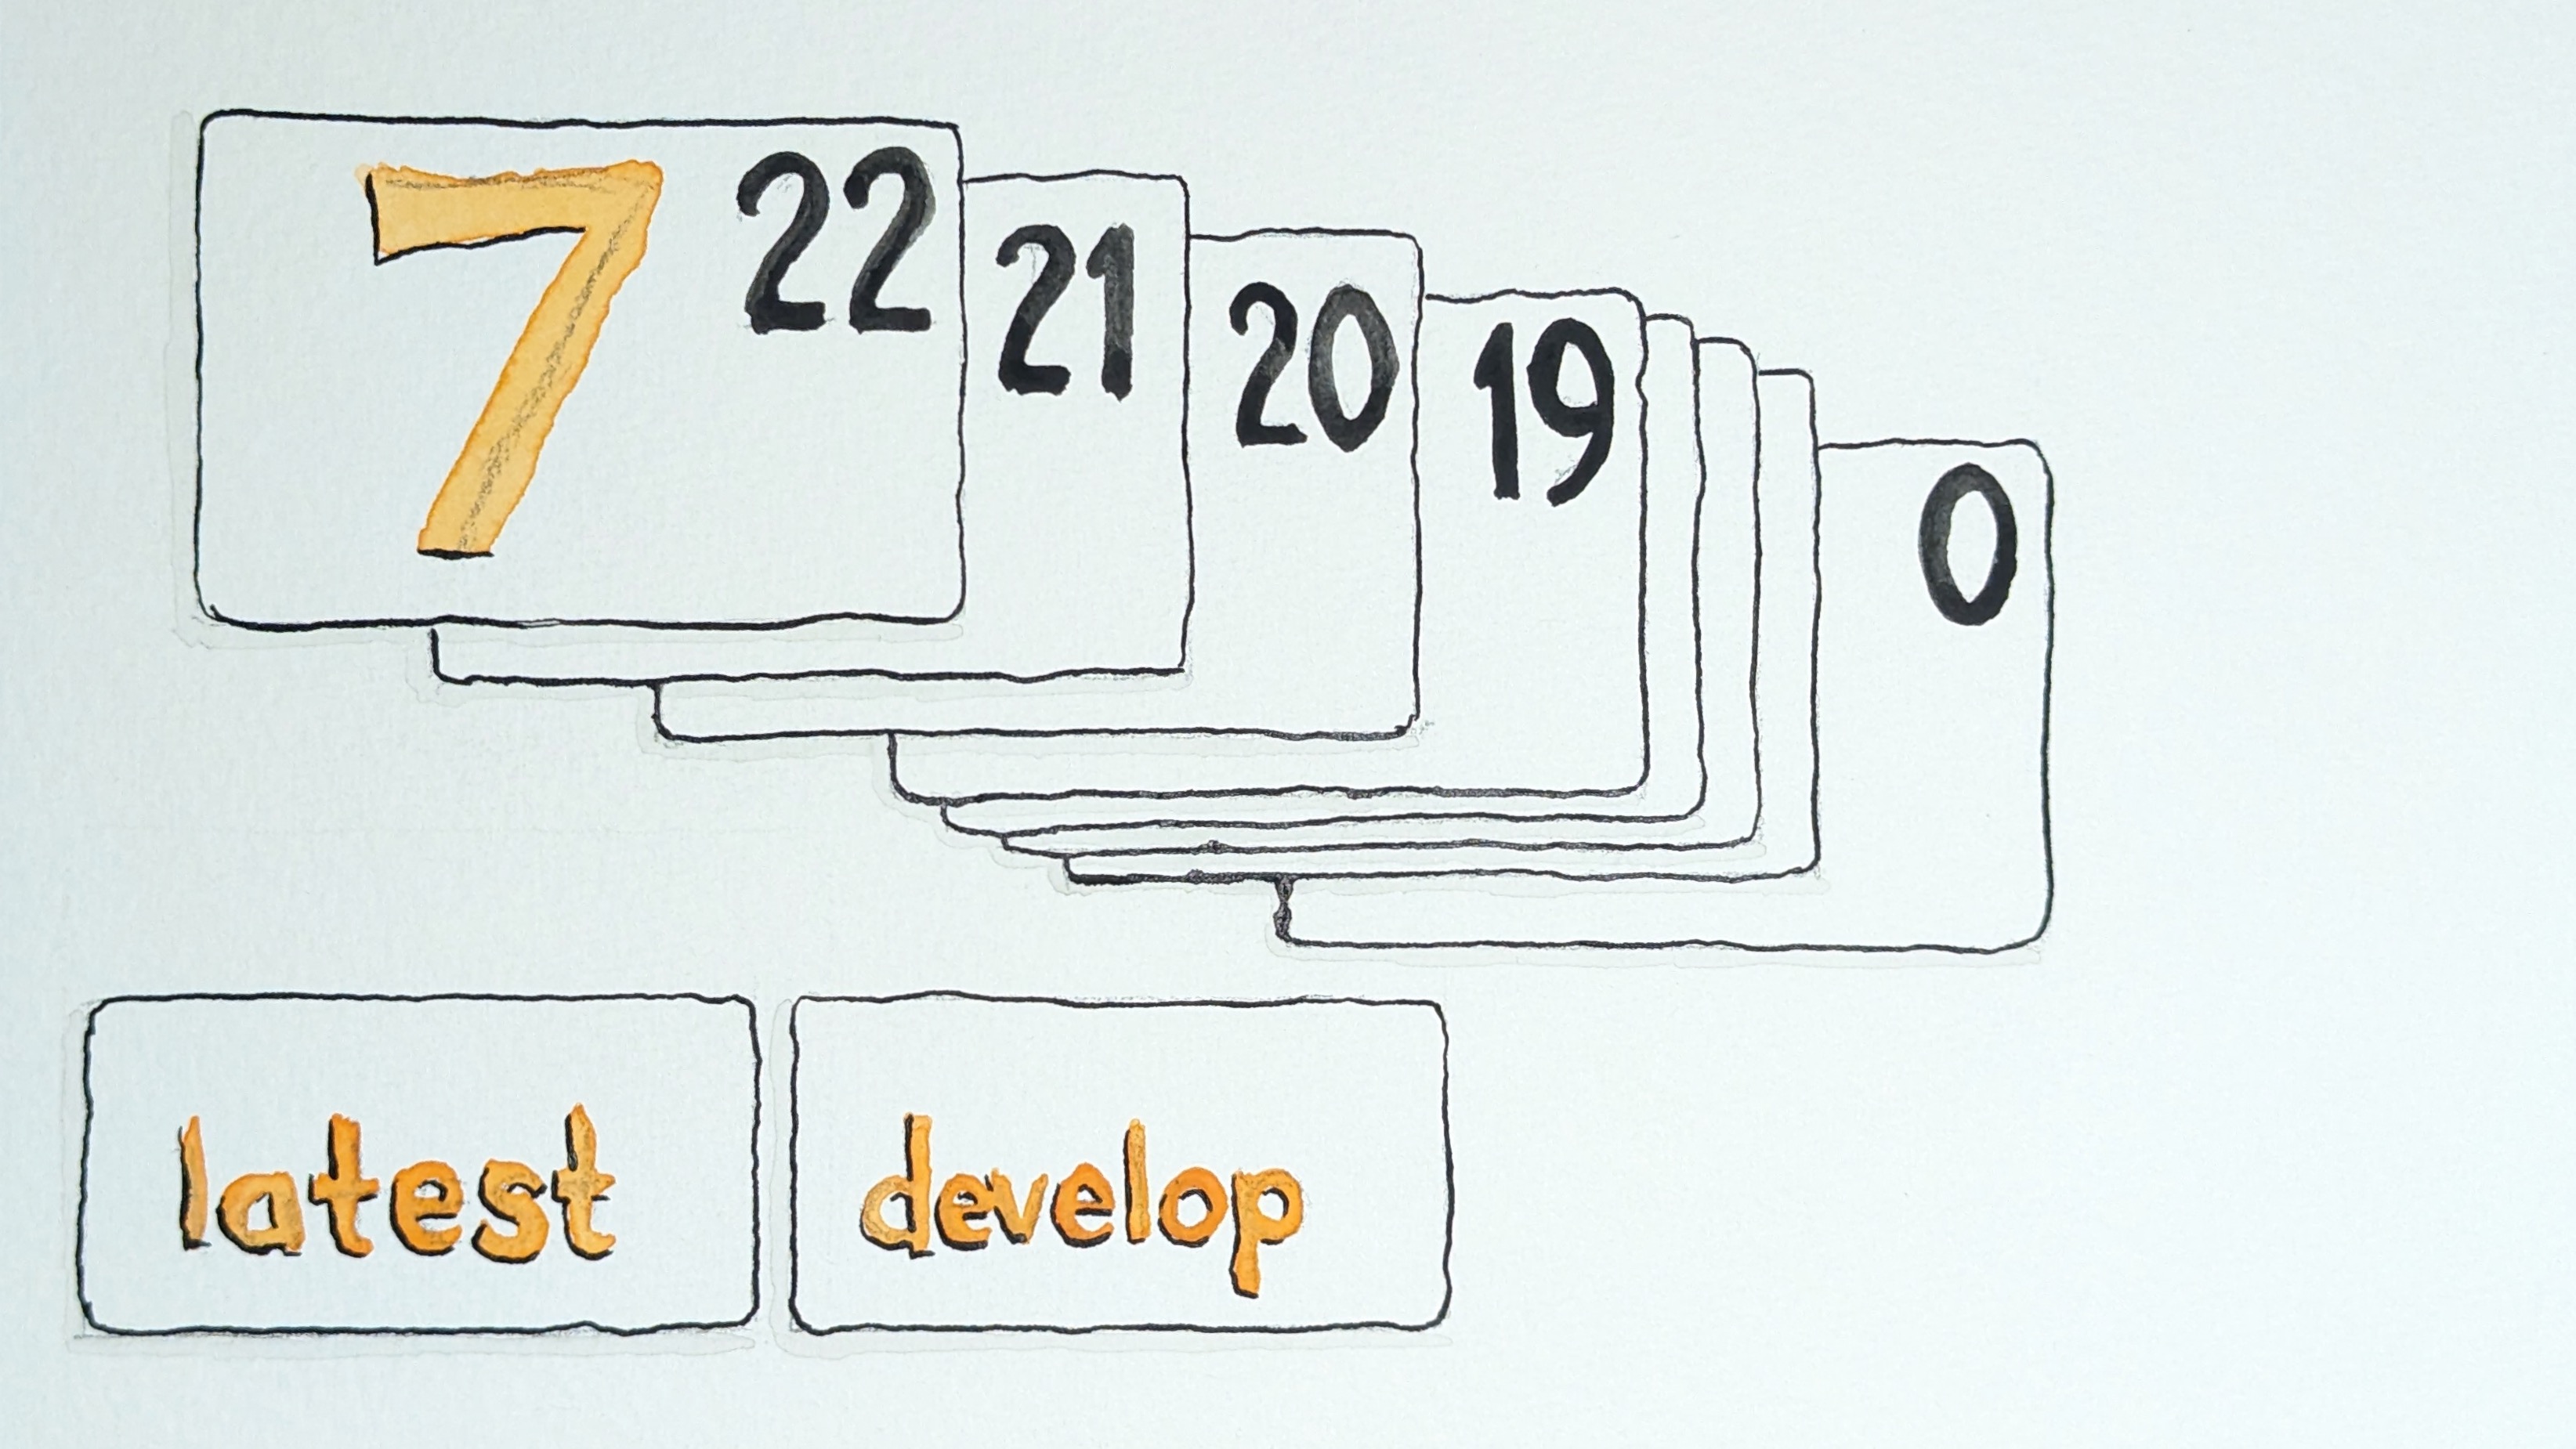 7 22 21 20 19 0
latest develop